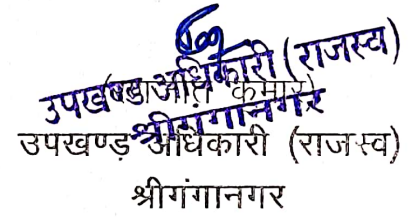 उपखण्ड अधिकारी (राजस्व)
श्रीगंगानगर
उपखण्ड अधिकारी (राजस्व)
श्रीगंगानगर